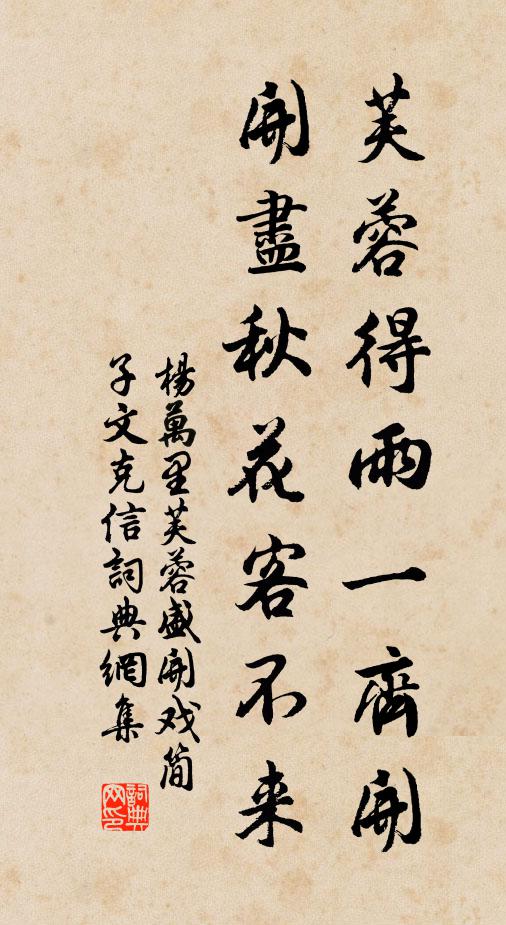 芙蓉得雨一齊開
開盡秋花客不来
楊萬里芙蓉盛開戏简
子文克信詞典網集
詞典
网印